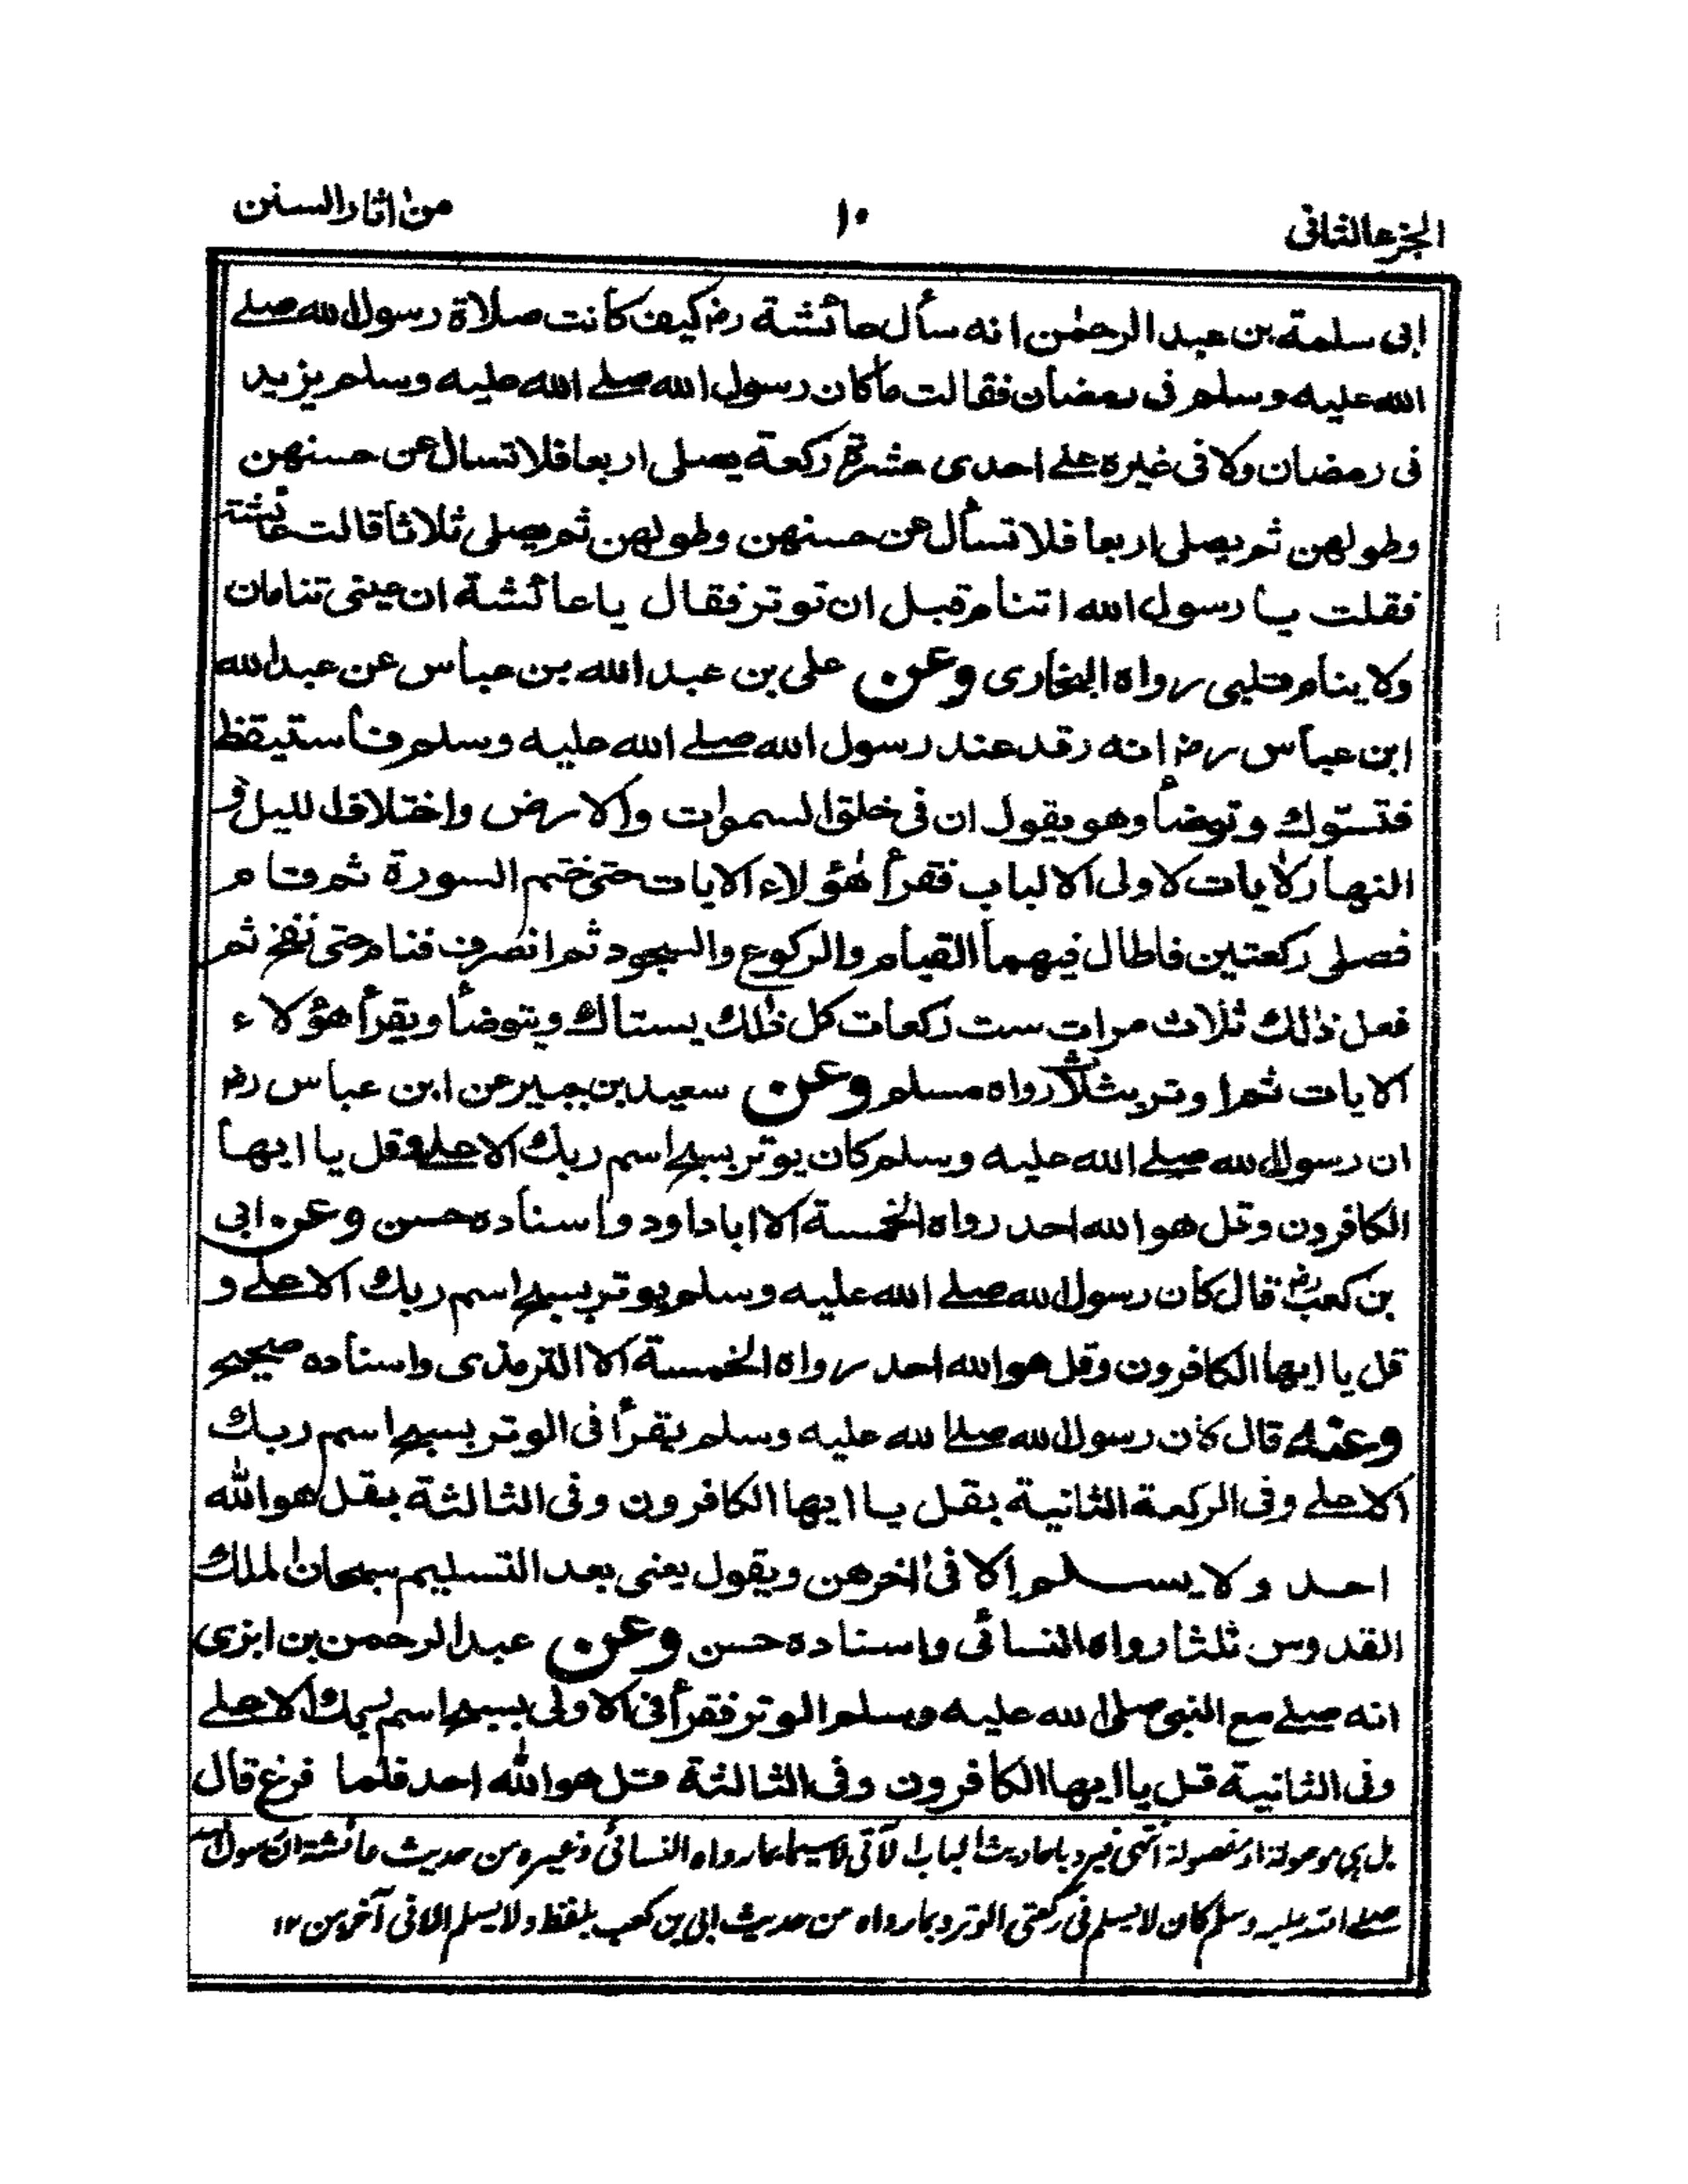 الجزء الثانی ١٠ من اٰثار السنن
ابی سلمة بن عبد الرحمٰن انه سأل عائشة رضـ کیف کانت صلاة رسول الله صلے
الله علیه وسلم فی رمضان فقالت ما کان رسول الله صلے الله علیه وسلم یزید
فی رمضان ولا فی غیره علے احدی عشرة رکعة یصلی اربعا فلا تسال عن حسنهن
وطولهن ثم یصلی اربعا فلا تسأل عن حسنهن وطولهن ثم یصلی ثلاثا قالت عائشة
فقلت یا رسول الله اتنام قبل ان توتر فقال یا عائشة ان عینی تنامان
ولا ینام قلبی رواه البخاری وعن علی بن عبد الله بن عباس عن عبد الله
ابن عباس رضـ انه رقد عند رسول الله صلے الله علیه وسلم فاستیقظ
فتسوك وتوضأ وهو یقول ان فی خلق السمٰوات والارض واختلاف اللیل و
النهار لاٰیات لاولی الالباب فقرأ هٰؤلاء الایات حتی ختم السورة ثم قام
فصلی رکعتین فاطال فیهما القیام والرکوع والسجود ثم انصرف فنام حتی نفخ ثم
فعل ذٰلك ثلاث مرات ست رکعات کل ذٰلك یستاك ویتوضأ ویقرأ هؤلاء
الایات ثم اوتر بثلاث رواه مسلم وعن سعید بن جبیر عن ابن عباس رضـ
ان رسول الله صلے الله علیه وسلم کان یوتر بسبح اسم ربك الاعلے وقل یا ایها
الکافرون وقل هو الله احد رواه الخمسة الا ابا داود واسناده حسن وعن ابی
بن کعب رضـ قال کان رسول الله صلے الله علیه وسلم یوتر بسبح اسم ربك الاعلے و
قل یا ایها الکافرون وقل هو الله احد رواه الخمسة الا الترمذی واسناده صحیح
وعنه قال کان رسول الله صلے الله علیه وسلم یقرأ فی الوتر بسبح اسم ربك
الاعلے وفی الرکعة الثانیة بقل یا ایها الکافرون وفی الثالثة بقل هو الله
احد ولا یسلم الا فی اٰخرهن ویقول یعنی بعد التسلیم سبحان الملك
القدوس ثلثا رواه النسائی واسناده حسن وعن عبد الرحمن بن ابزی
انه صلے مع النبی صلی الله علیه وسلم الوتر فقرأ فی الاولی بسبح اسم ربك الاعلے
وفی الثانیة قل یا ایها الکافرون وفی الثالثة قل هو الله احد فلما فرغ قال
بل هی موصولة او مفصولة انتهی فیرد باحادیث الباب الآتی لا سیما بما رواه النسائی وغیره من حدیث عائشة ان رسول الله
صلے الله علیه وسلم کان لا یسلم فی رکعتی الوتر وبما رواه من حدیث ابی بن کعب بلفظ ولا یسلم الا فی آخرهن ١٢